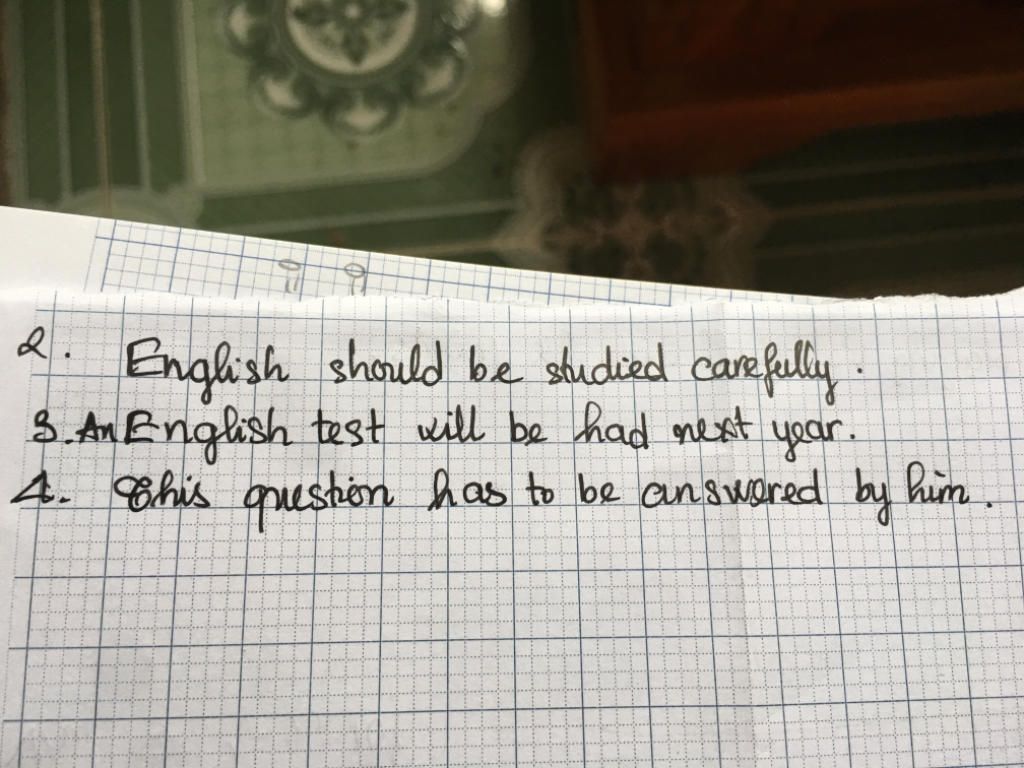 2. English should be studied carefully.
3. An English test will be had next year.
4. This question has to be answered by him.